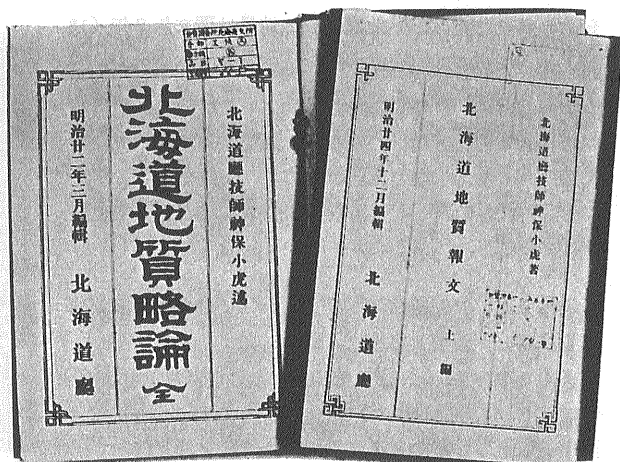 北海道廳技師神保小虎述
北海道地質略論 全
明治廿二年三月編輯 北海道廳
北海道廳技師神保小虎著
北海道地質報文 上編
明治廿四年十二月編輯 北海道廳